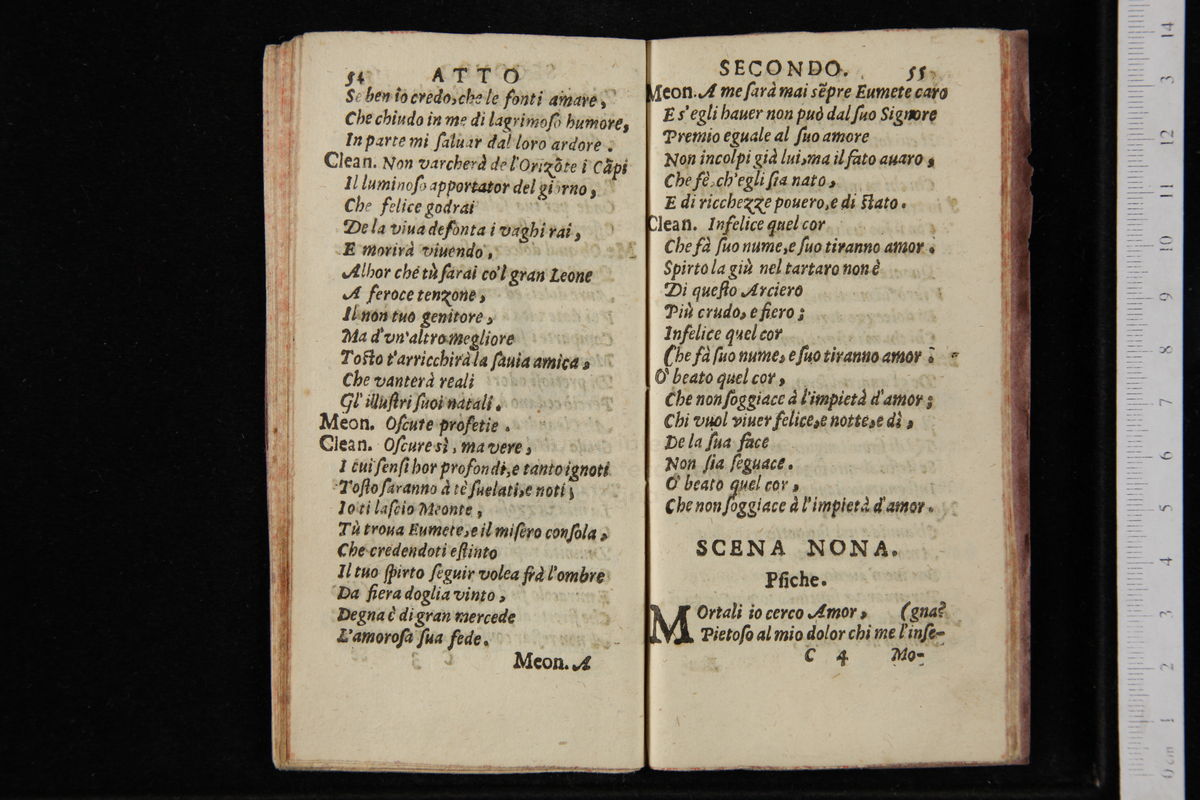 54 ATTO
Se ben io credo, che le fonti amare,
Che chiudo in me di lagrimoso humore,
In parte mi saluar dal loro ardore.
Clean. Non varcherà de l'Orizõte i Cãpi
Il luminoso apportator del giorno,
Che felice godrai
De la viua defonta i vaghi rai,
E morirà viuendo,
Alhor che tù sarai co'l gran Leone
A feroce tenzone,
Il non tuo genitore,
Ma d'vn'altro megliore
Tosto t'arricchirà la sauia amica,
Che vanterà reali
Gl'illustri suoi natali.
Meon. Oscute profetie.
Clean. Oscure sì, ma vere,
I cui sensi hor profondi, e tanto ignoti
Tosto saranno à tè suelati, e noti;
Io ti lascio Meonte,
Tù troua Eumete, e il misero consola,
Che credendoti estinto
Il tuo spirto seguir volea frà l'ombre
Da fiera doglia vinto,
Degna è di gran mercede
L'amorosa sua fede.
Meon. A
SECONDO. 55
Meon. A me sarà mai sẽpre Eumete caro
E s'egli hauer non può dal suo Signore
Premio eguale al suo amore
Non incolpi già lui, ma il fato auaro,
Che fè, ch'egli sia nato,
E di ricchezze pouero, e di stato.
Clean. Infelice quel cor
Che fà suo nume, e suo tiranno amor.
Spirto la giù nel tartaro non è
Di questo Arciero
Più crudo, e fiero;
Infelice quel cor
Che fà suo nume, e suo tiranno amor:
O' beato quel cor,
Che non soggiace à l'impietà d'amor;
Chi vuol viuer felice, e notte, e dì,
De la sua face
Non sia seguace.
O' beato quel cor,
Che non soggiace à l'impietà d'amor.
SCENA NONA.
Psiche.
MOrtali io cerco Amor, (gna?
Pietoso al mio dolor chi me l'inse-
C 4 Mo-
0 cm 1 2 3 4 5 6 7 8 9 10 11 12 3 14